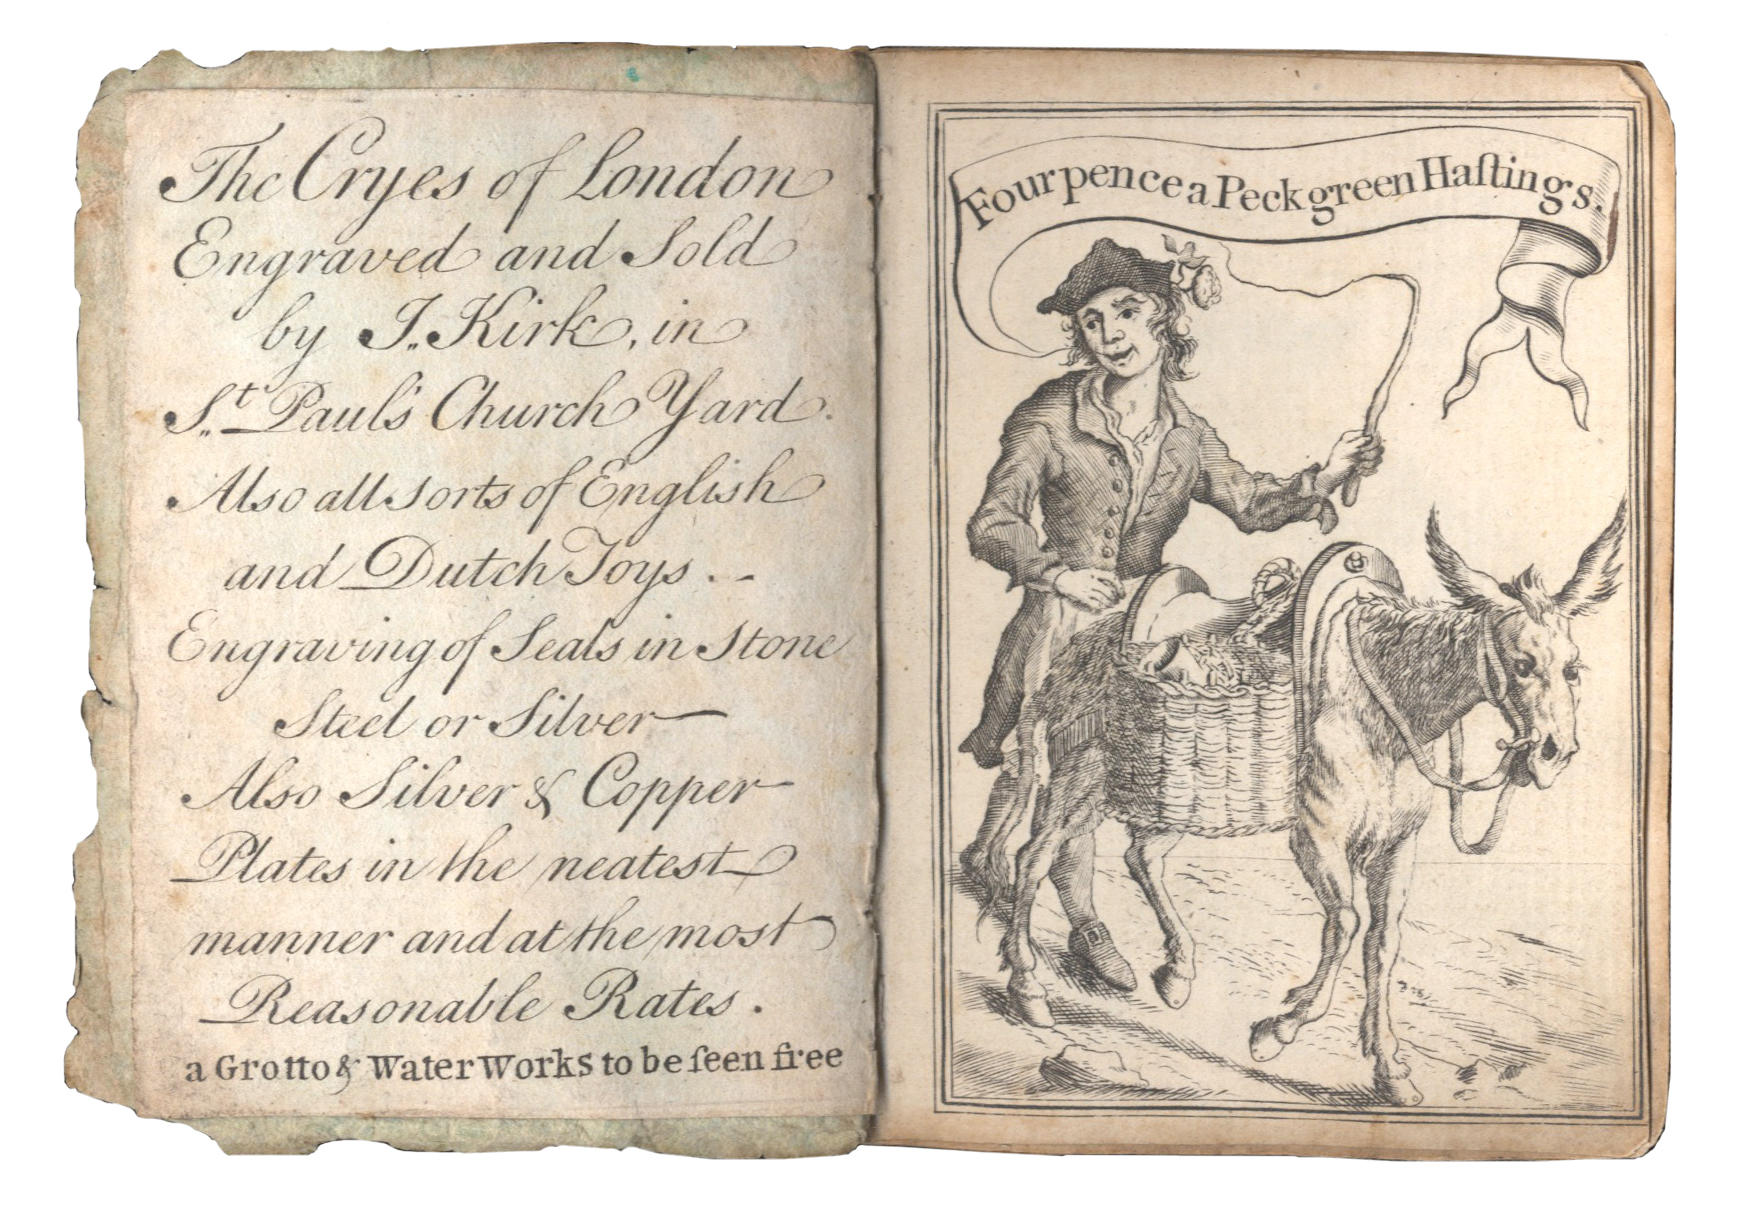 The Cryes of London
Engraved and Sold
by J. Kirk, in
St. Paul's Church Yard.
Also all sorts of English
and Dutch Toys.
Engraving of Seals in Stone
Steel or Silver
Also Silver & Copper
Plates in the neatest
manner and at the most
Reasonable Rates.
a Grotto & Water Works to be ſeen free
Four pence a Peck green Haſtings.